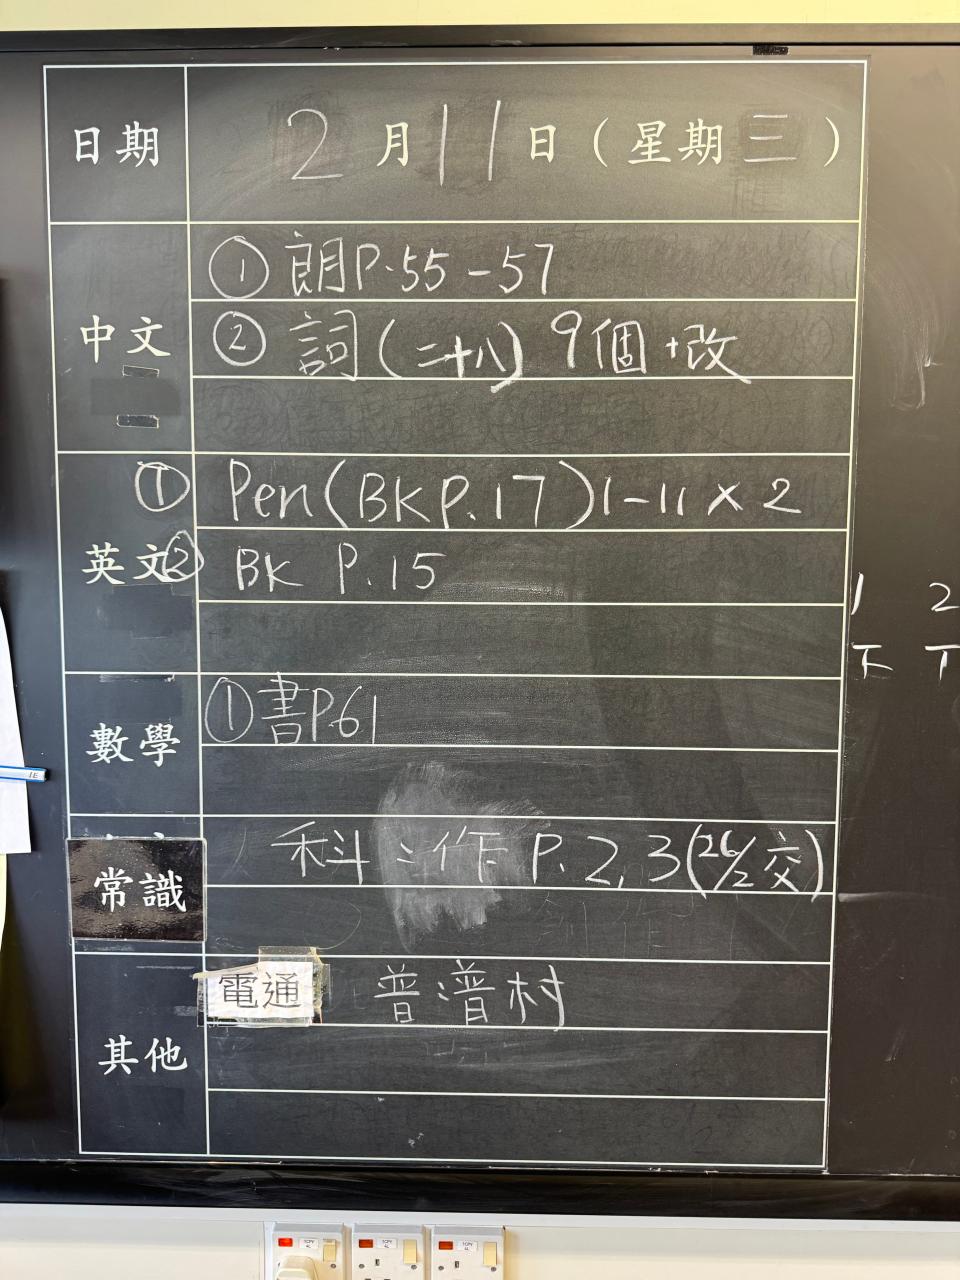 日期 2月11日（星期三）
中文
① 朗P.55-57
② 詞(二十八) 9個+改
英文
① Pen(BK P.17) 1-11 x 2
② BK P.15
數學
① 書P.61
常識
科:作 P.2,3(26/2交)
其他
電通 普普村
1 2
下 下
1E